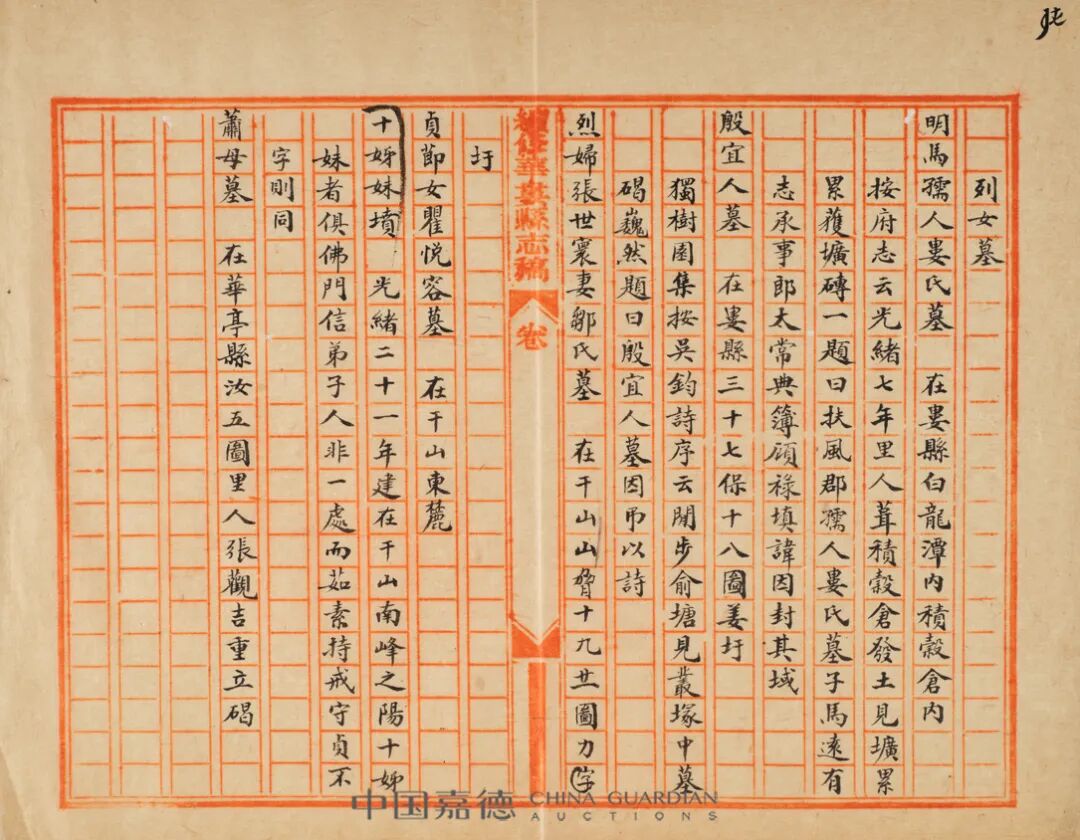 列女墓
明馬孺人婁氏墓 在婁縣白龍潭內積穀倉內
按府志云光緒七年里人葺積穀倉發土見壙累
累獲壙磚一題曰扶風郡孺人婁氏墓子馬遠有
志承事郎太常典簿顧祿填諱因封其域
殷宜人墓 在婁縣三十七保十八圖姜圩
獨樹園集按吳鈞詩序云閒步俞塘見叢塚中墓
碣巍然題曰殷宜人墓因弔以詩
烈婦張世寰妻鄒氏墓 在干山山脅十九廿一圖力字
續修華婁縣志稿 卷
圩
貞節女瞿悅容墓 在干山東麓
十姊妹墳 光緒二十一年建在干山南峰之陽十姊
妹者俱佛門信弟子人非一處而茹素持戒守貞不
字則同
蕭母墓 在華亭縣汝五圖里人張觀吉重立碣
中国嘉德 CHINA GUARDIAN AUCTIONS